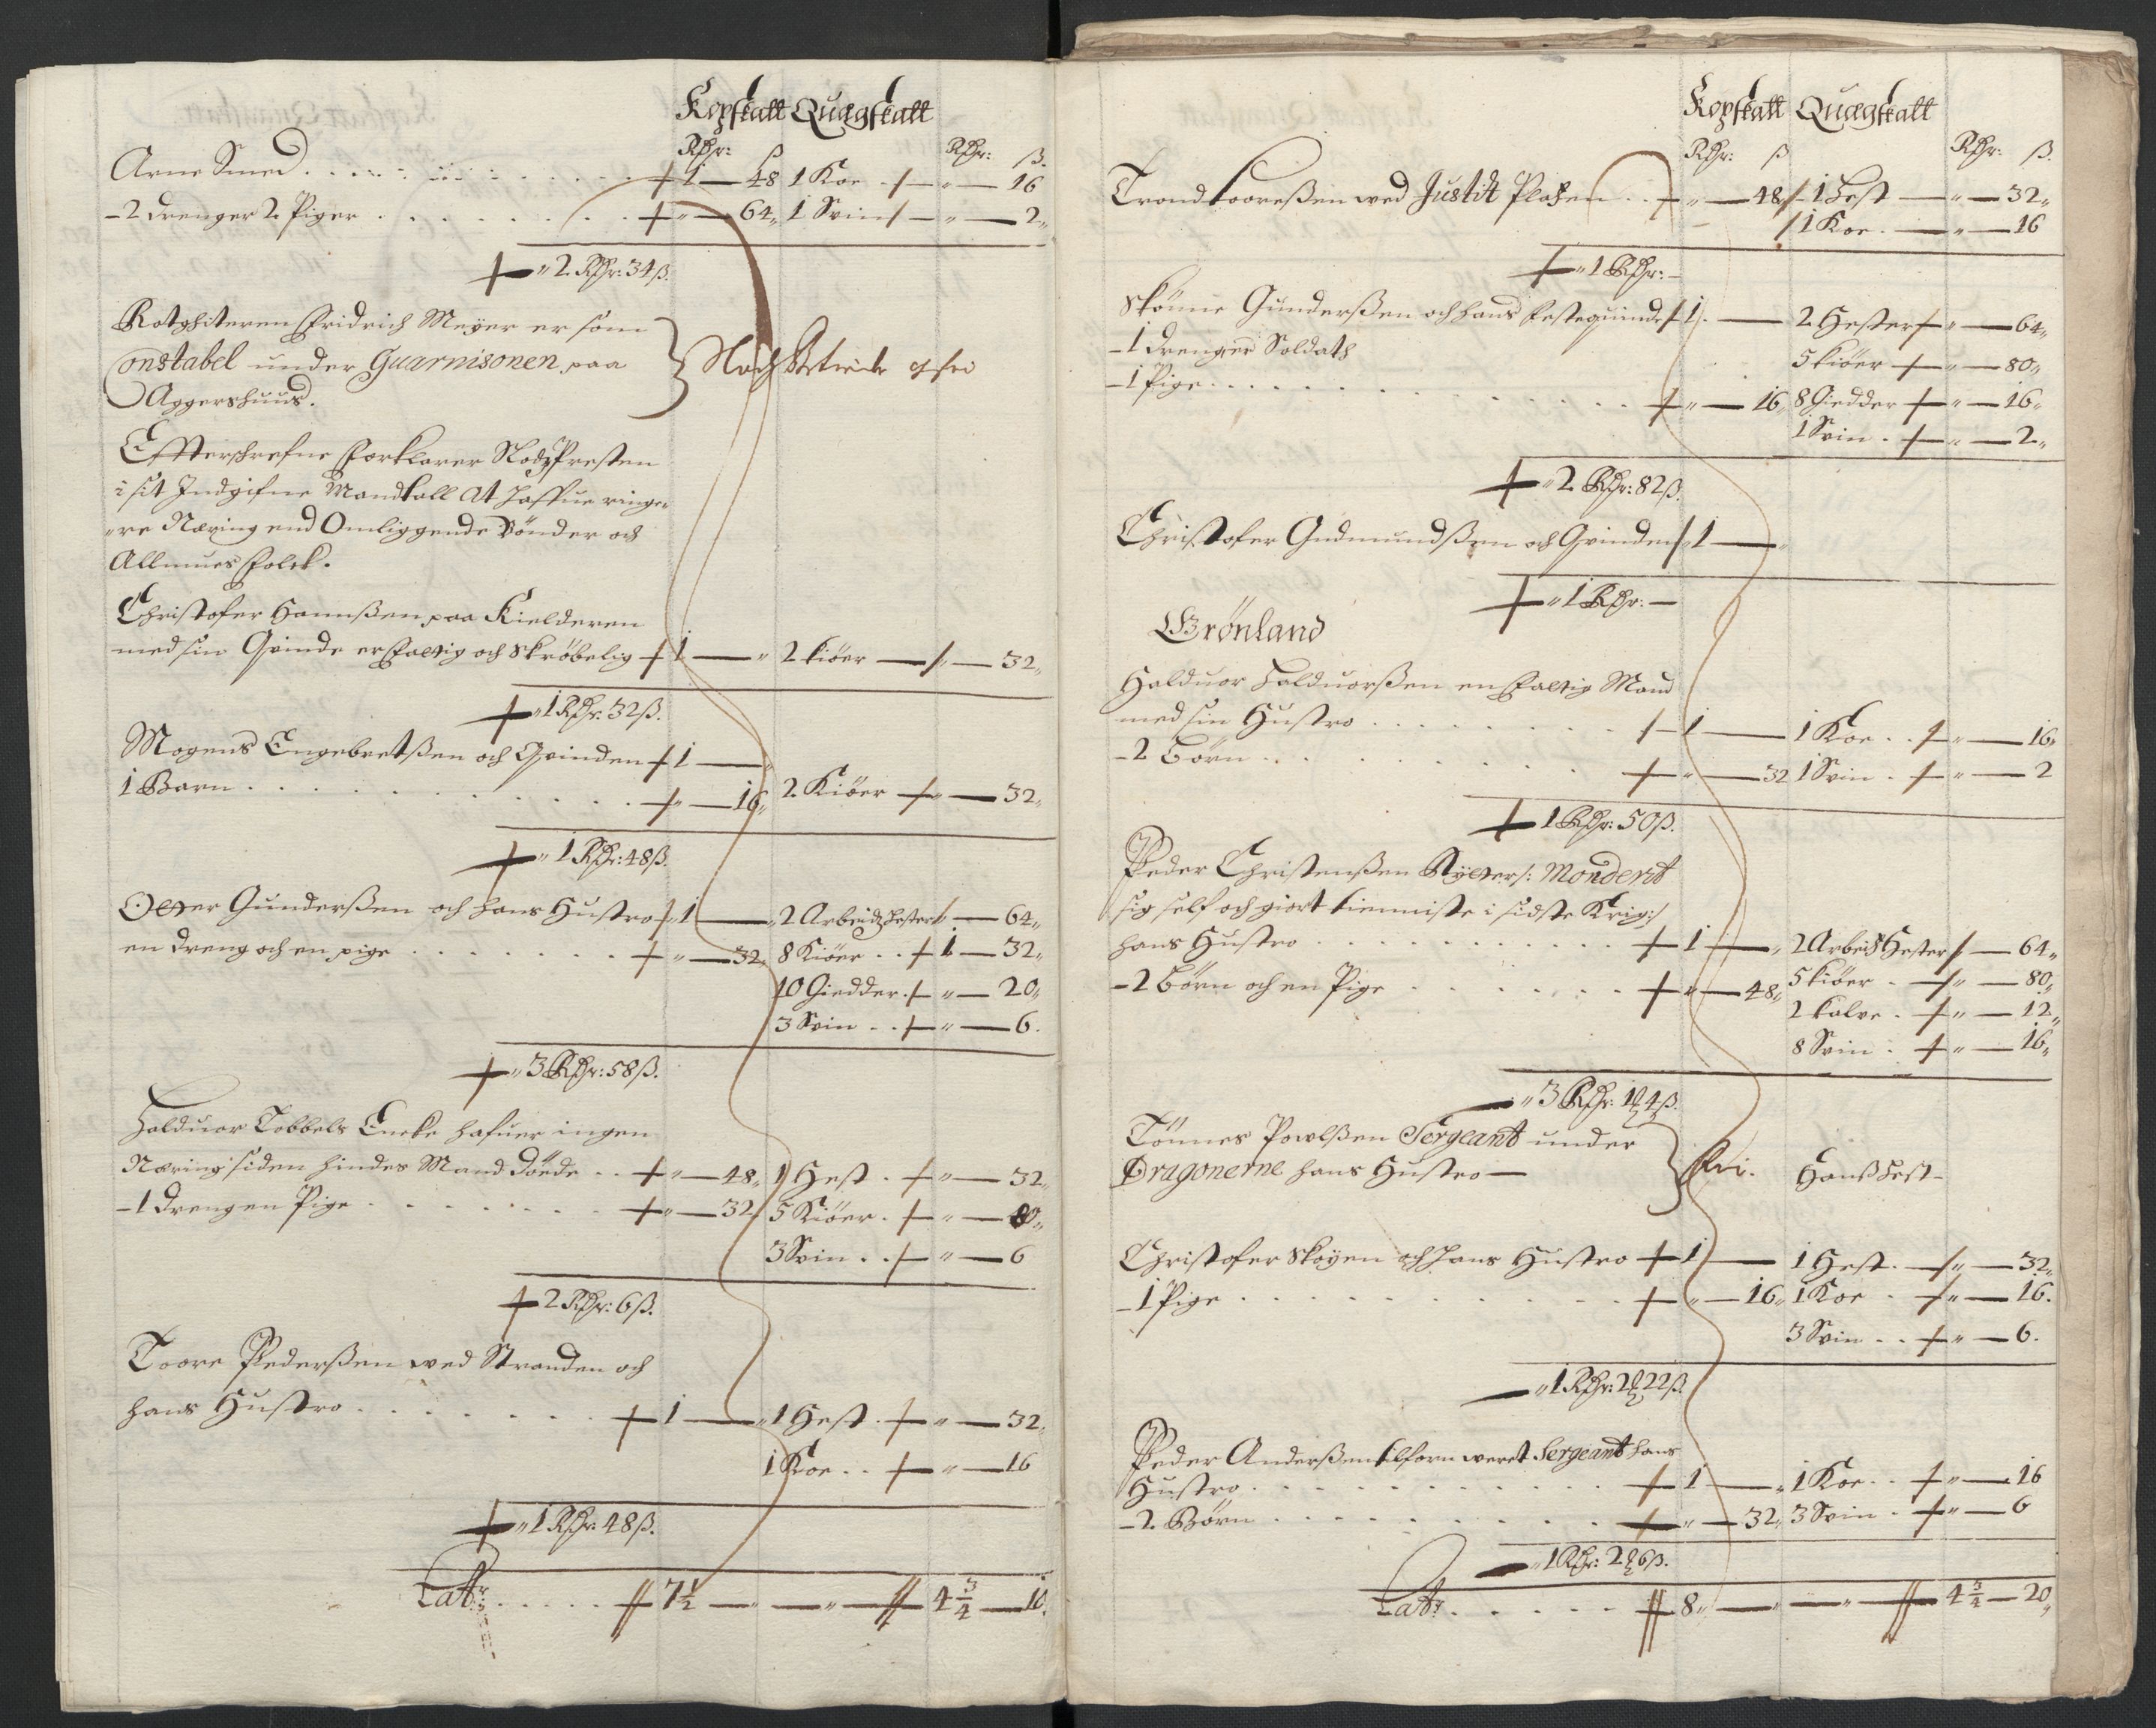 Kopskatt Quægskatt
Rdr: ß Rdr: ß.
Arne Smed . . . . 1 — 48 1 Koe — " — 16
- 2 drenger 2 Piger . . . . " — 64" 1 Svin — " — 2"
" 2 Rdr: 34 ß.
Fridrich Meÿer er som
Constabel under Guarnisonen paa
Aggershuus.
Effterschrefne Forklarer Præsten
i sit Indgifne Mandtall At haffue ringe-
"re Næring end Omliggende Bönder och
Allmues Folck.
Christofer Hannßen paa Kielderen
med sin Qvinde er fattig och Skröbelig 1 — " 2 kiöer — " — 32"
" 1 Rdr: 32 ß.
Mogens Engebretßen och Qvinden 1 — "
1 Barn . . . . " — 16" 2 Kiöer — " — 32"
" 1 Rdr: 48 ß.
Gunderßen och hans Hustro 1 — " 2 Arbeidzhester " — 64"
en dreng och en pige . . . . " — 32" 8 Kiöer . . 1 — 32"
10 Giedder . " — 20"
3 Svin . . " — 6.
" 3 Rdr: 58 ß.
Halduor Tobbels Encke hafuer ingen
Næring siden hindes Mand döede . . " — 48" 1 Hest . " — 32"
- 1 dreng en Pige . . . . " — 32" 5 Kiöer . " — 80"
3 Svin . . " — 6
2 Rdr: 6 ß.
Toore Pederßen wed Stranden och
hans Hustro . . . . 1 — " 1 Hest . " — 32"
1 Koe . . " — 16
" 1 Rdr: 48 ß.
Latr . . . . 7 1/2 — " — " — 4 3/4 — 10.
Kopskatt Quægskatt
Rdr: ß Rdr: ß.
Trond Tooreßen wed Justitz Platzen . . " — 48" 1 Hest — " — 32"
1 Koe . — " — 16
" 1 Rdr: —
Gunderßen och hans festequinde 1. — 2 Hester " — 64"
- 1 dreng er Soldath 5 kiöer — " — 80"
- 1 Pige . . . . " — 16" 8 Giedder — " — 16"
1 Svin . — " — 2"
" 2 Rdr: 82 ß.
Christofer Gudmundßen och Qvinden 1 — "
" 1 Rdr: —
Grönland
Halduor Halduorßen en fattig Mand
med sin Hustro . . . . 1 — 1 Koe . . " — 16"
- 2 Börn . . . . " — 32 1 Svin . " — 2
1 Rdr: 50 ß.
Peder Christenßen Rÿtter /: Monderit
sig self och giort tienniste i sidste Krig :/
hans Hustro . . . . 1 — " 2 Arbeids Hester — 64"
- 2 Börn och en Pige . . . . " — 48" 5 kiöer . " — 80"
2 kalve . " — 12"
8 Svin . " — 16"
" 3 Rdr: 4 ß.
Tönnes Powlßen Sergeant under
Dragonerne hans Hustro — fri. Hans Hest -
Christofer Skoyen och hans Hustro 1 — 1 Hest . " — 32"
- 1 Pige . . . . " — 16" 1 Koe . " — 16.
3 Svin . . " — 6.
" 1 Rdr: 22 ß.
Peder Anderßen tilforn weret Sergeant hans
Hustro . . . . 1 — " 1 Koe . . " — 16
- 2 Börn . . . . " — 32" 3 Svin . " — 6
" 1 Rdr: 6 ß.
Latr . . . . 8" — " — " — 4 3/4 — 20"